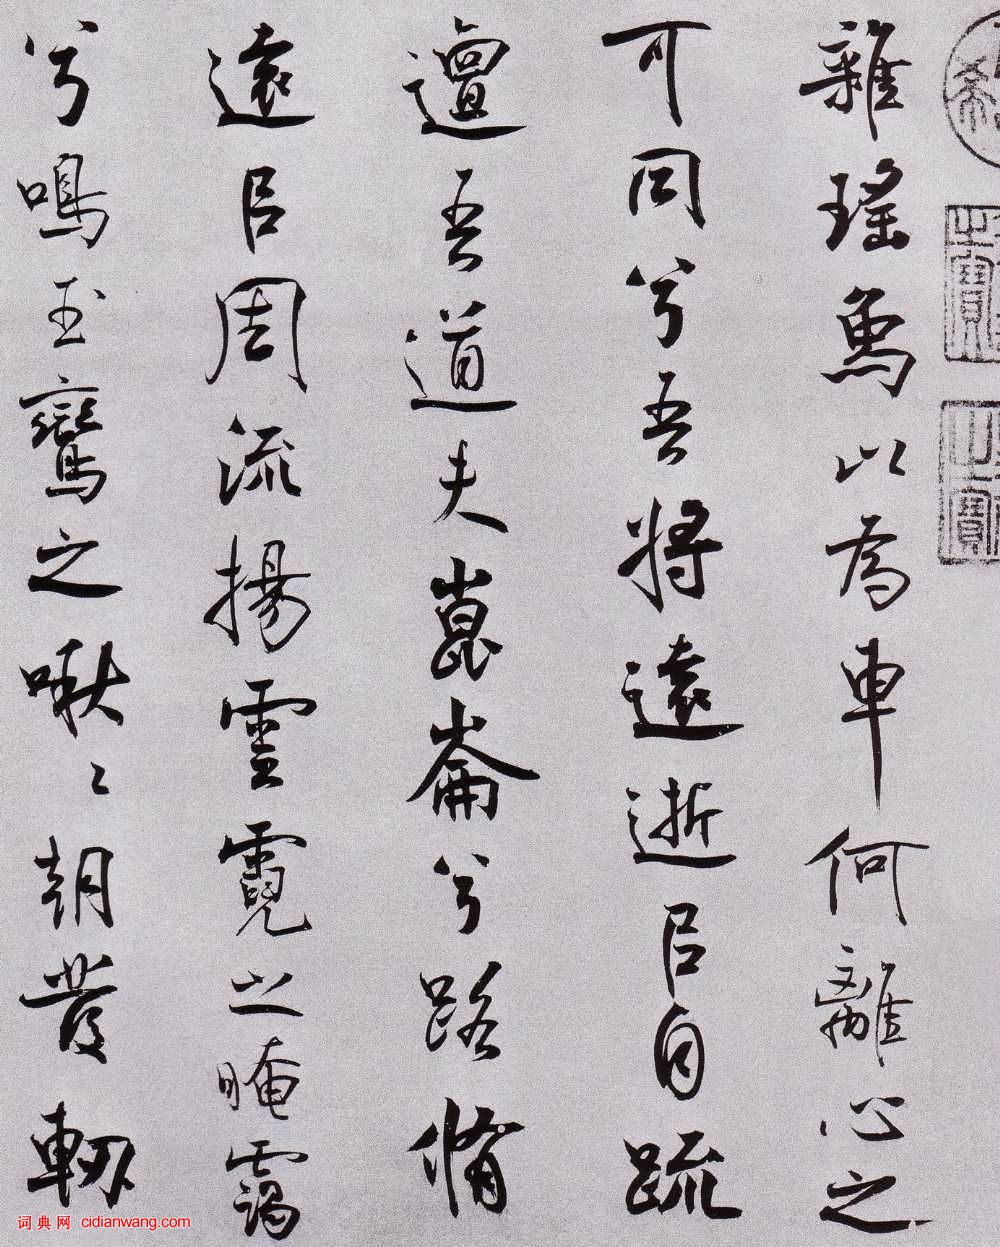 雜瑤象以為車何離心之
可同兮吾將遠逝㠯自疏
邅吾道夫崑崙兮路脩
遠㠯周流揚雲霓之晻靄
兮鳴玉鸞之啾〻朝發軔
之寶
之寶
词典网 cidianwang.com